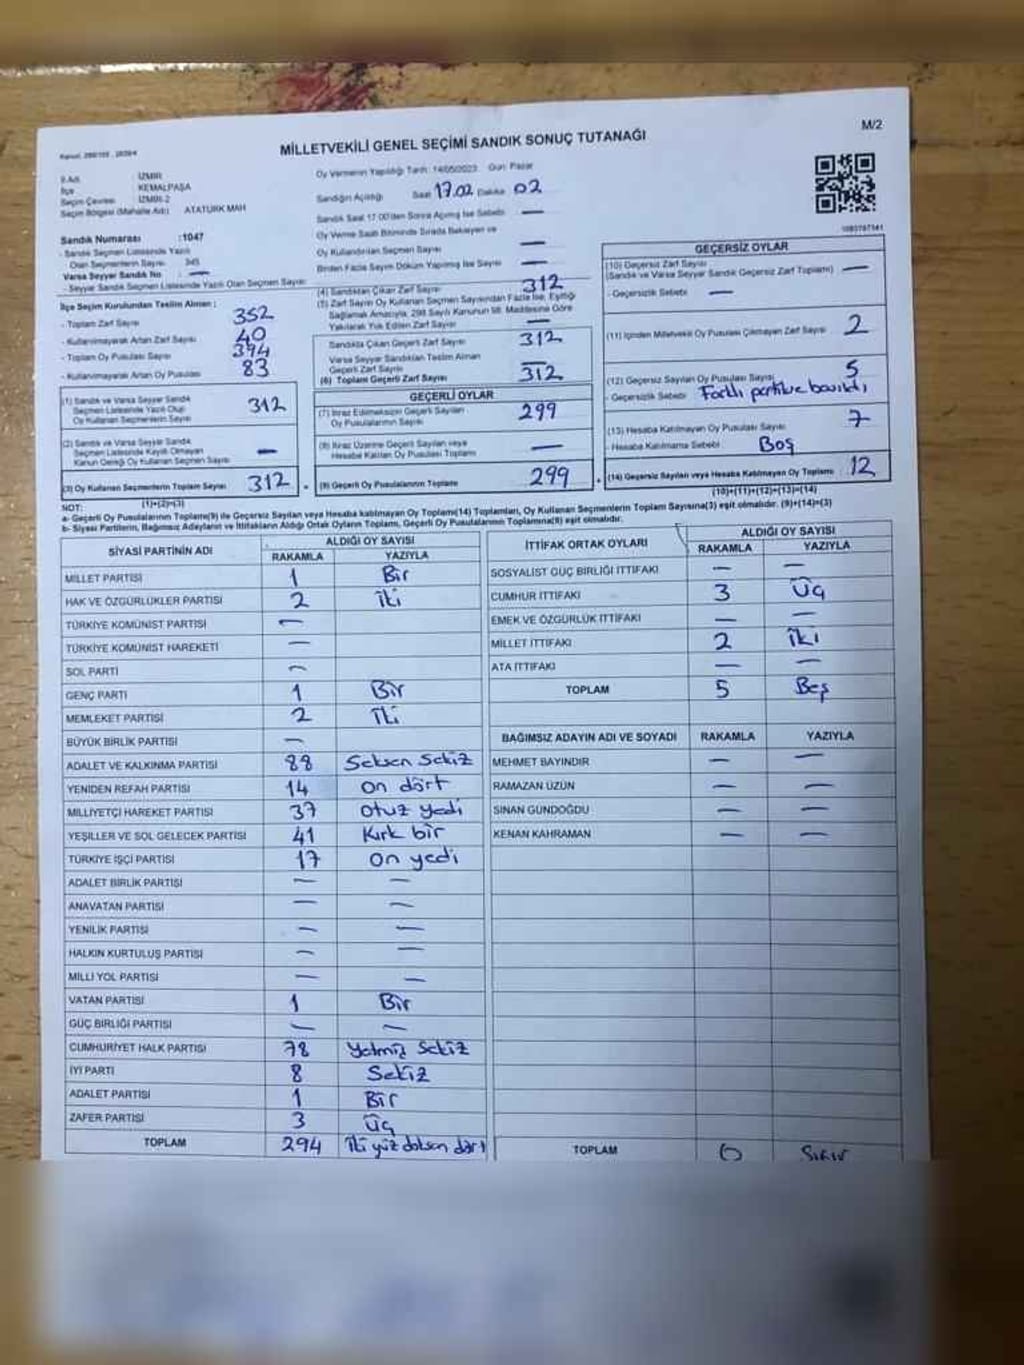 M/2
MİLLETVEKİLİ GENEL SEÇİMİ SANDIK SONUÇ TUTANAĞI
İl Adı İZMİR
İlçe KEMALPAŞA
Seçim Çevresi İZMİR-2
Seçim Bölgesi (Mahalle Adı) ATATÜRK MAH
Sandık Numarası :1047
- Sandık Seçmen Listesinde Yazılı
Olan Seçmenlerin Sayısı 345
Varsa Seyyar Sandık No : —
- Seyyar Sandık Seçmen Listesinde Yazılı Olan Seçmen Sayısı
İlçe Seçim Kurulundan Teslim Alınan :
- Toplam Zarf Sayısı 352
- Kullanılmayarak Artan Zarf Sayısı 40
- Toplam Oy Pusulası Sayısı 394
- Kullanılmayarak Artan Oy Pusulası 83
(1) Sandık ve Varsa Seyyar Sandık
Seçmen Listesinde Yazılı Olup
Oy Kullanan Seçmenlerin Sayısı 312
(2) Sandık ve Varsa Seyyar Sandık
Seçmen Listesinde Kaydı Olmayan
Kanun Gereği Oy Kullanan Seçmen Sayısı —
(3) Oy Kullanan Seçmenlerin Toplam Sayısı 312
(1)+(2)=(3)
Oy Vermenin Yapıldığı Tarih: 14/05/2023 Gün: Pazar
Sandığın Açıldığı Saat 17.02 Dakika 02
Sandık Saat 17:00'den Sonra Açılmış İse Sebebi —
Oy Verme Saati Bitiminde Sırada Bekleyen ve
Oy Kullandırılan Seçmen Sayısı —
Birden Fazla Sayım Döküm Yapılmış İse Sayısı —
(4) Sandıktan Çıkan Zarf Sayısı 312
(5) Zarf Sayısı Oy Kullanan Seçmen Sayısından Fazla İse, Eşitliği
Sağlamak Amacıyla, 298 Sayılı Kanunun 98. Maddesine Göre
Yakılarak Yok Edilen Zarf Sayısı —
Sandıkta Çıkan Geçerli Zarf Sayısı 312
Varsa Seyyar Sandıktan Teslim Alınan
Geçerli Zarf Sayısı —
(6) Toplam Geçerli Zarf Sayısı 312
GEÇERLİ OYLAR
(7) İtiraz Edilmeksizin Geçerli Sayılan
Oy Pusulalarının Sayısı 299
(8) İtiraz Üzerine Geçerli Sayılan veya
Hesaba Katılan Oy Pusulaları Toplamı —
(9) Geçerli Oy Pusulalarının Toplamı 299
GEÇERSİZ OYLAR
(10) Geçersiz Zarf Sayısı —
(Sandık ve Varsa Seyyar Sandık Geçersiz Zarf Toplamı)
- Geçersizlik Sebebi —
(11) İçinden Milletvekili Oy Pusulası Çıkmayan Zarf Sayısı 2
(12) Geçersiz Sayılan Oy Pusulası Sayısı 5
- Geçersizlik Sebebi Farklı partilere basıldı
(13) Hesaba Katılmayan Oy Pusulası Sayısı 7
- Hesaba Katılmama Sebebi Boş
(14) Geçersiz Sayılan veya Hesaba Katılmayan Oy Toplamı 12
(10)+(11)+(12)+(13)=(14)
NOT:
a- Geçerli Oy Pusulalarının Toplamı(9) ile Geçersiz Sayılan veya Hesaba katılmayan Oy Toplamı(14) Toplamları, Oy Kullanan Seçmenlerin Toplam Sayısına(3) eşit olmalıdır. (9)+(14)=(3)
b- Siyasi Partilerin, Bağımsız Adayların ve İttifakların Aldığı Ortak Oyların Toplamı, Geçerli Oy Pusulalarının Toplamına(9) eşit olmalıdır.
SİYASİ PARTİNİN ADI ALDIĞI OY SAYISI
RAKAMLA YAZIYLA
MİLLET PARTİSİ 1 Bir
HAK VE ÖZGÜRLÜKLER PARTİSİ 2 İki
TÜRKİYE KOMÜNİST PARTİSİ —
TÜRKİYE KOMÜNİST HAREKETİ —
SOL PARTİ —
GENÇ PARTİ 1 Bir
MEMLEKET PARTİSİ 2 İki
BÜYÜK BİRLİK PARTİSİ —
ADALET VE KALKINMA PARTİSİ 88 Seksen Sekiz
YENİDEN REFAH PARTİSİ 14 on dört
MİLLİYETÇİ HAREKET PARTİSİ 37 otuz yedi
YEŞİLLER VE SOL GELECEK PARTİSİ 41 Kırk bir
TÜRKİYE İŞÇİ PARTİSİ 17 on yedi
ADALET BİRLİK PARTİSİ — —
ANAVATAN PARTİSİ — —
YENİLİK PARTİSİ — —
HALKIN KURTULUŞ PARTİSİ — —
MİLLİ YOL PARTİSİ — —
VATAN PARTİSİ 1 Bir
GÜÇ BİRLİĞİ PARTİSİ — —
CUMHURİYET HALK PARTİSİ 78 Yetmiş Sekiz
İYİ PARTİ 8 Sekiz
ADALET PARTİSİ 1 Bir
ZAFER PARTİSİ 3 Üç
TOPLAM 294 İki yüz doksan dört
İTTİFAK ORTAK OYLARI ALDIĞI OY SAYISI
RAKAMLA YAZIYLA
SOSYALİST GÜÇ BİRLİĞİ İTTİFAKI — —
CUMHUR İTTİFAKI 3 Üç
EMEK VE ÖZGÜRLÜK İTTİFAKI — —
MİLLET İTTİFAKI 2 İki
ATA İTTİFAKI — —
TOPLAM 5 Beş
BAĞIMSIZ ADAYIN ADI VE SOYADI RAKAMLA YAZIYLA
MEHMET BAYINDIR — —
RAMAZAN ÜZÜN — —
SİNAN GÜNDOĞDU — —
KENAN KAHRAMAN — —
TOPLAM 0 Sıfır